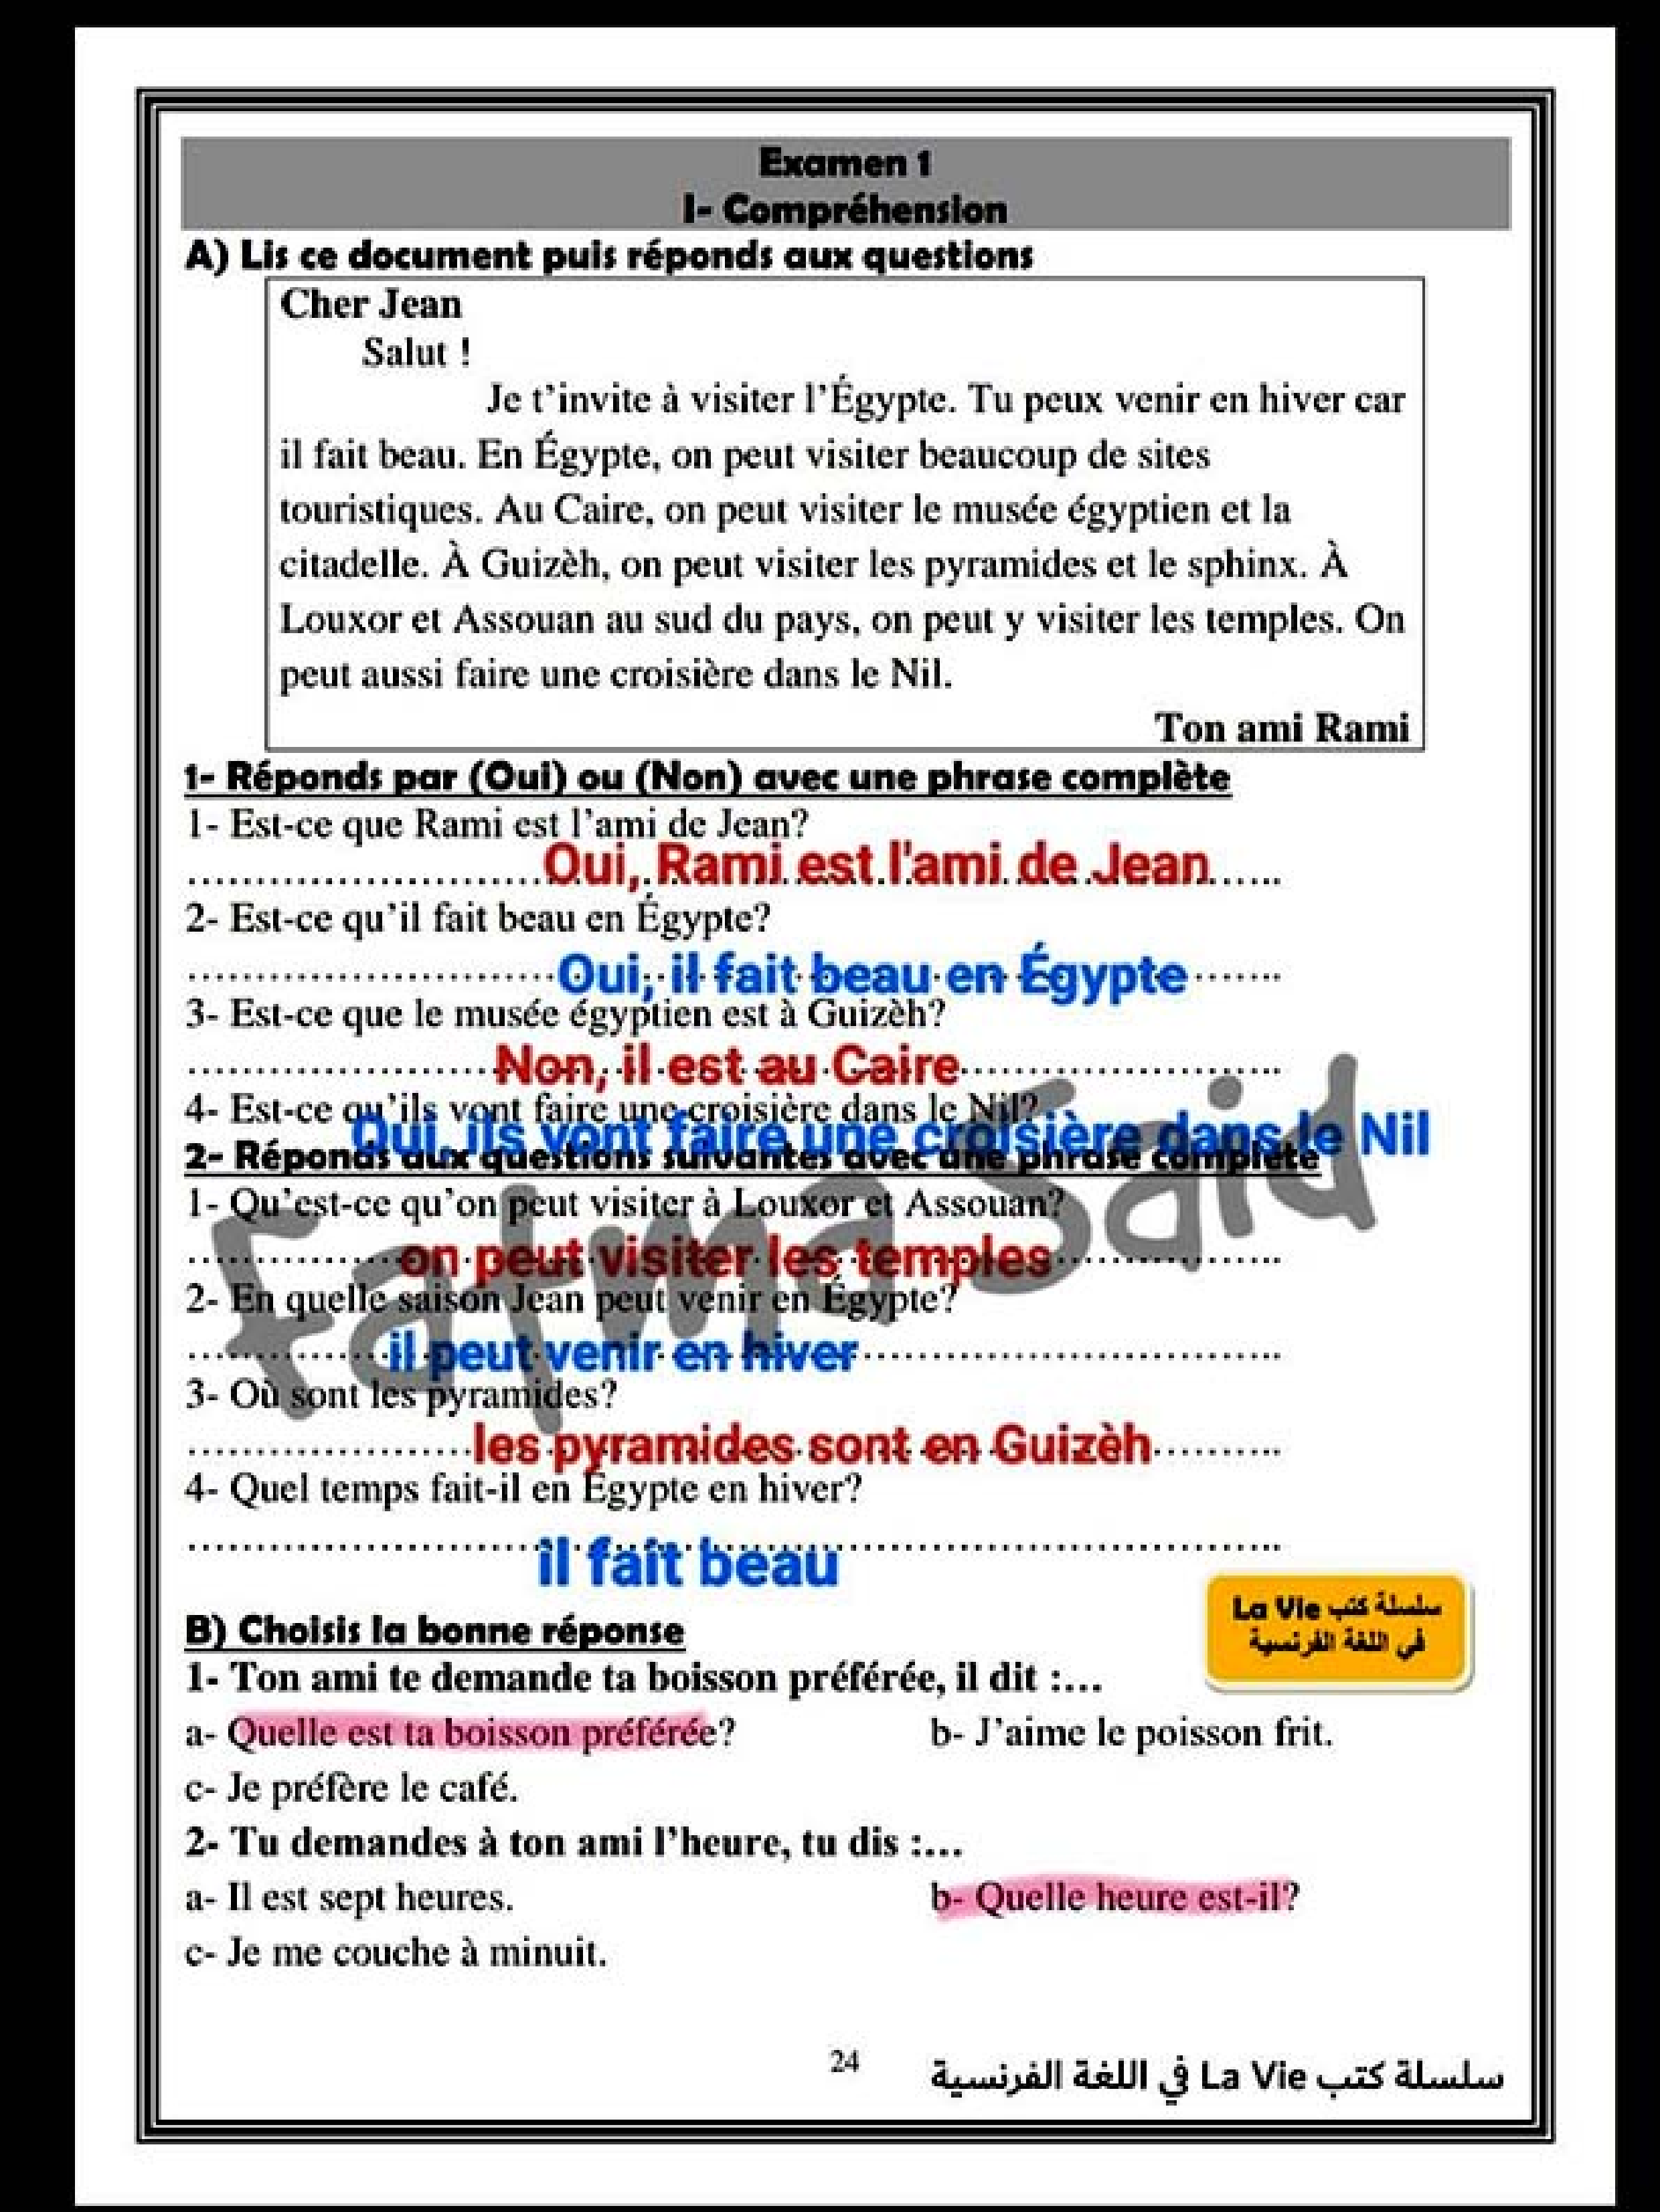 Examen 1
I- Compréhension
A) Lis ce document puis réponds aux questions
Cher Jean
Salut !
Je t'invite à visiter l'Égypte. Tu peux venir en hiver car
il fait beau. En Égypte, on peut visiter beaucoup de sites
touristiques. Au Caire, on peut visiter le musée égyptien et la
citadelle. À Guizèh, on peut visiter les pyramides et le sphinx. À
Louxor et Assouan au sud du pays, on peut y visiter les temples. On
peut aussi faire une croisière dans le Nil.
Ton ami Rami
1- Réponds par (Oui) ou (Non) avec une phrase complète
1- Est-ce que Rami est l'ami de Jean?
Oui, Rami est l'ami de Jean
2- Est-ce qu'il fait beau en Égypte?
Oui, il fait beau en Égypte
3- Est-ce que le musée égyptien est à Guizèh?
Non, il est au Caire
4- Est-ce qu'ils vont faire une croisière dans le Nil?
Oui, ils vont faire une croisière dans le Nil
2- Réponds aux questions suivantes avec une phrase complète
1- Qu'est-ce qu'on peut visiter à Louxor et Assouan?
on peut visiter les temples
2- En quelle saison Jean peut venir en Égypte?
il peut venir en hiver
3- Où sont les pyramides?
les pyramides sont en Guizèh
4- Quel temps fait-il en Égypte en hiver?
il fait beau
Fatma Said
سلسلة كتب La Vie
في اللغة الفرنسية
B) Choisis la bonne réponse
1- Ton ami te demande ta boisson préférée, il dit :...
a- Quelle est ta boisson préférée? b- J'aime le poisson frit.
c- Je préfère le café.
2- Tu demandes à ton ami l'heure, tu dis :...
a- Il est sept heures. b- Quelle heure est-il?
c- Je me couche à minuit.
24
سلسلة كتب La Vie في اللغة الفرنسية